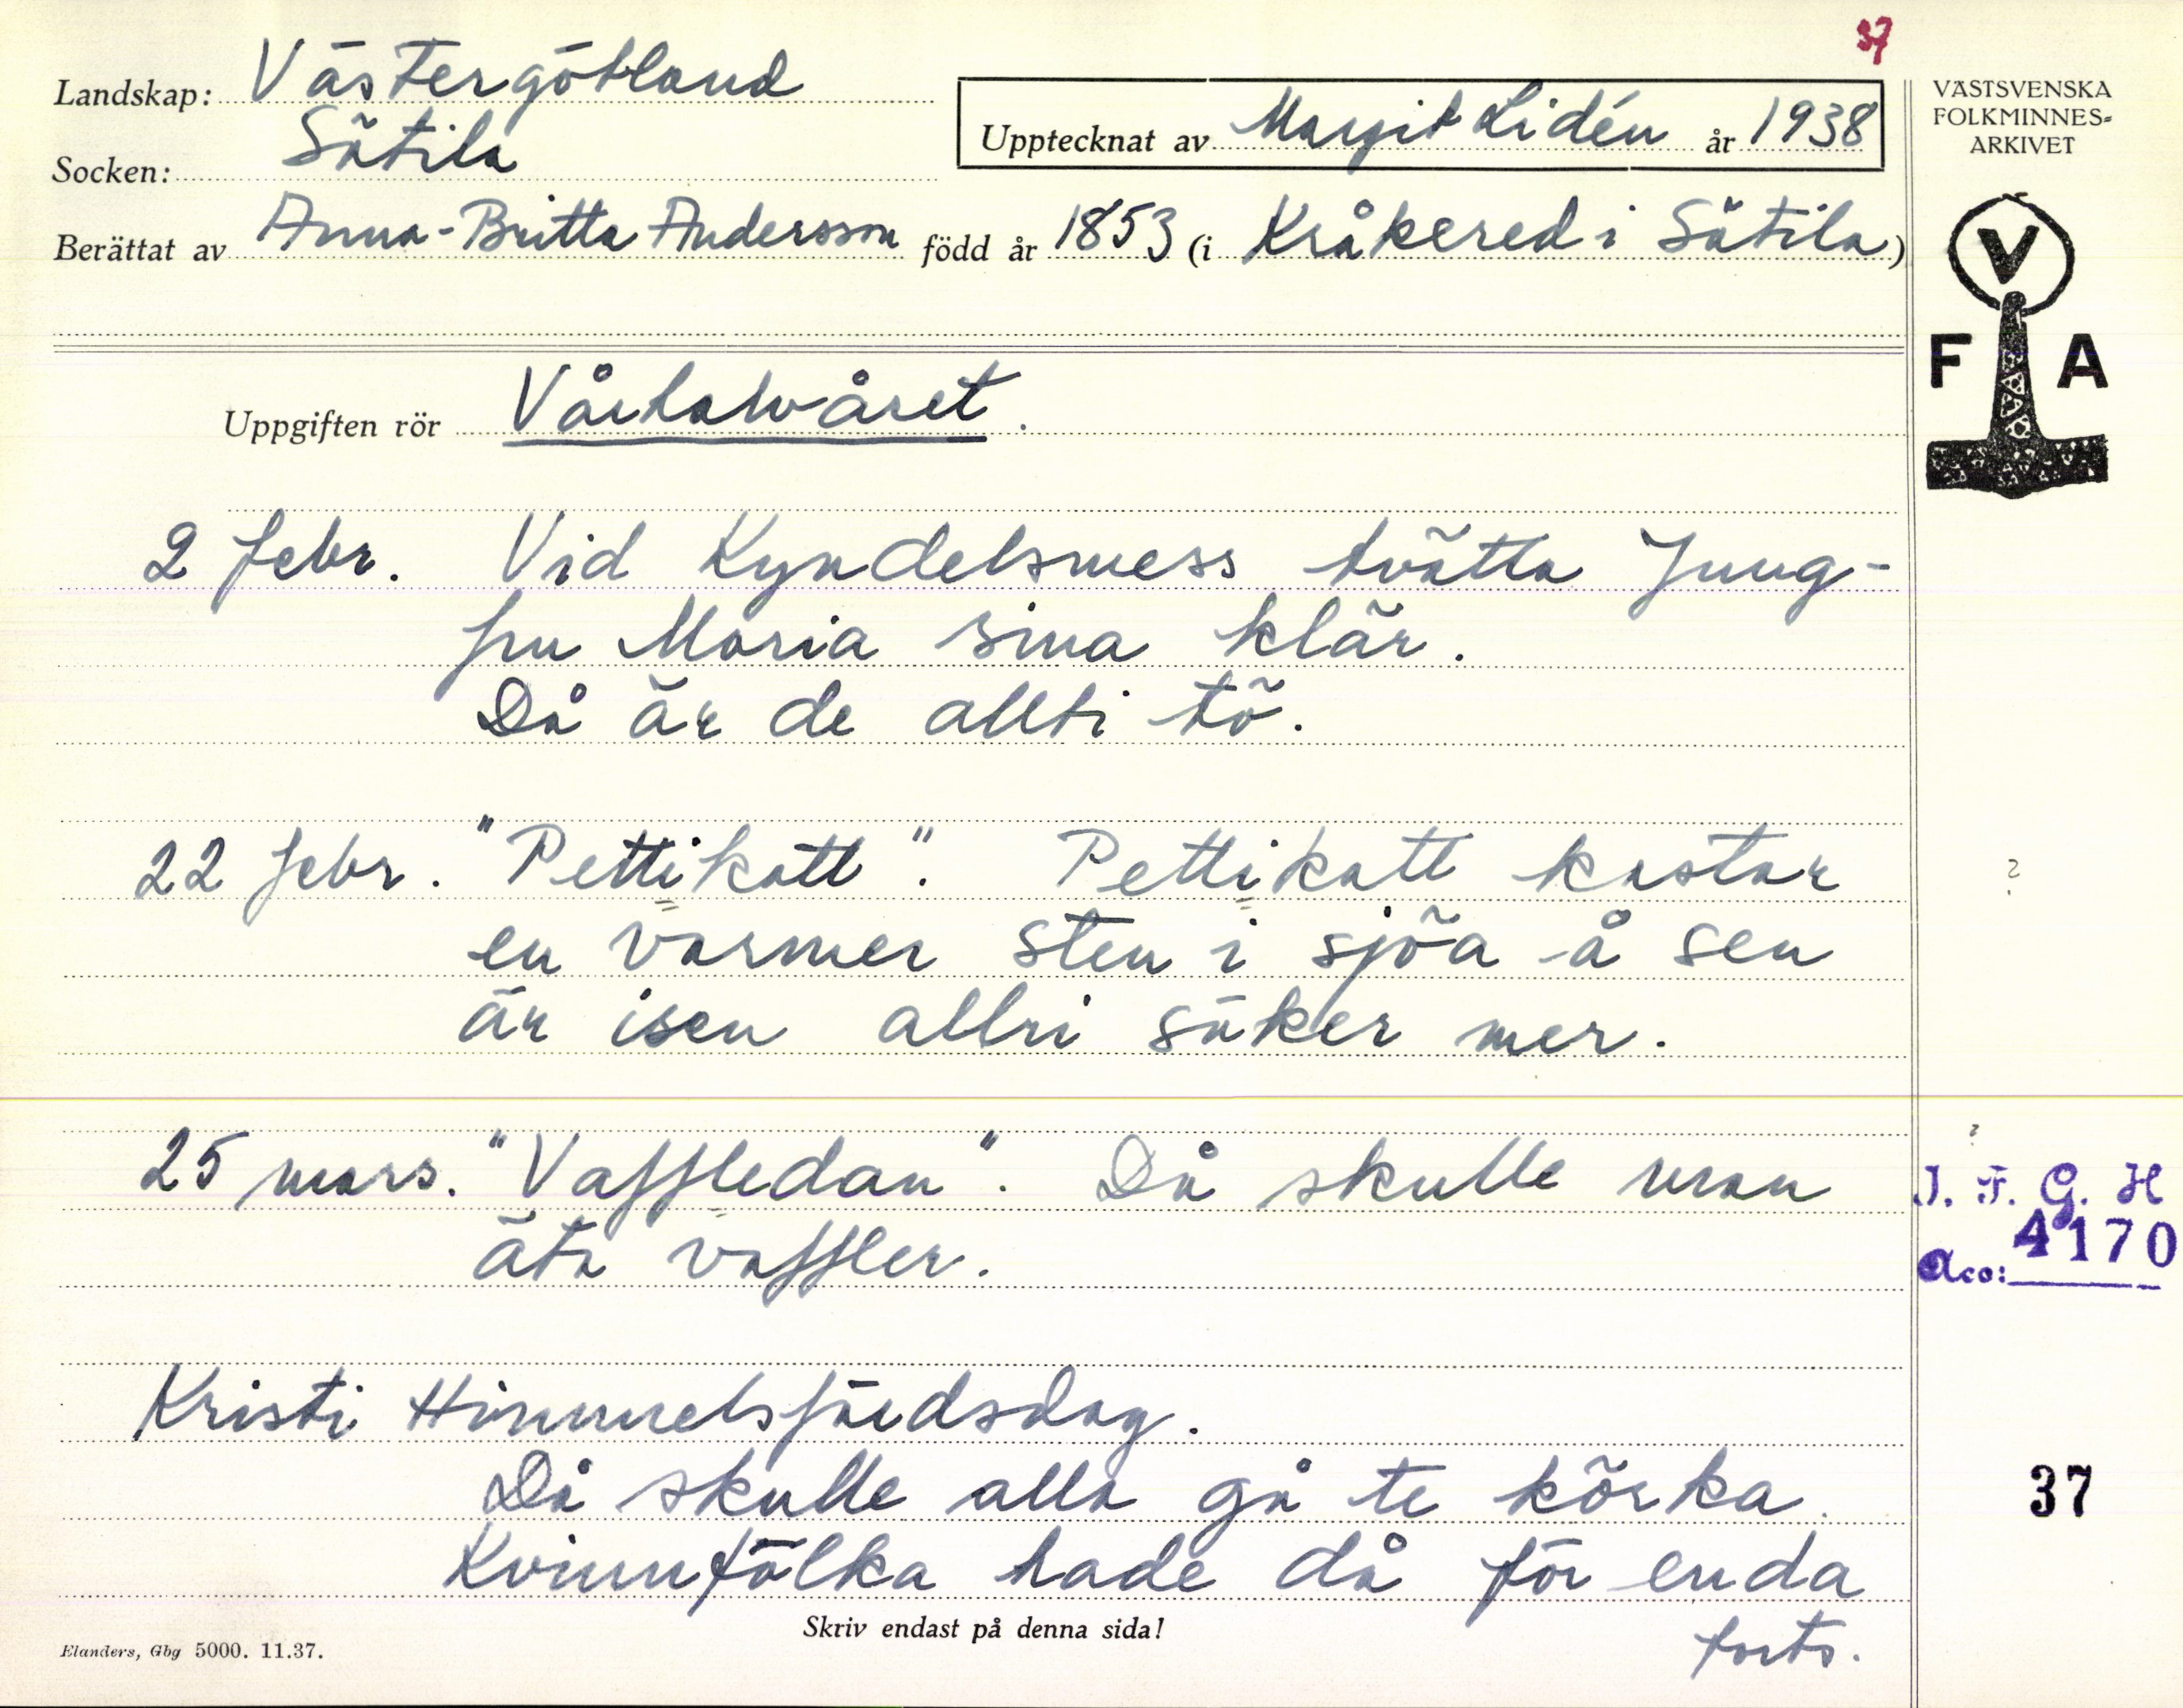 37
Landskap: Västergötland
Socken: Sätila
Upptecknat av Margit Lidén år 1938
Berättat av Anna-Britta Andersson född år 1853 (i Kråkered i Sätila)
VÄSTSVENSKA
FOLKMINNES=
ARKIVET
V
F A
Uppgiften rör Vårhalvåret.
2 febr. Vid Kyndelsmess tvätta Jung-
fru Maria sina klär.
Då är de allti tö.
22 febr. "Pettikatt". Pettikatt kastar
?
en varmer sten i sjöa å sen
är isen allri säker mer.
25 mars. "Vaffledan". Då skulle man
?
äta väffler.
I. F. G. H
Acc: 4170
Kristi Himmelsfärdsdag.
Då skulle alla gå te körka.
37
Kvinnfölka hade då för enda
forts.
Skriv endast på denna sida!
Elanders, Gbg 5000. 11.37.